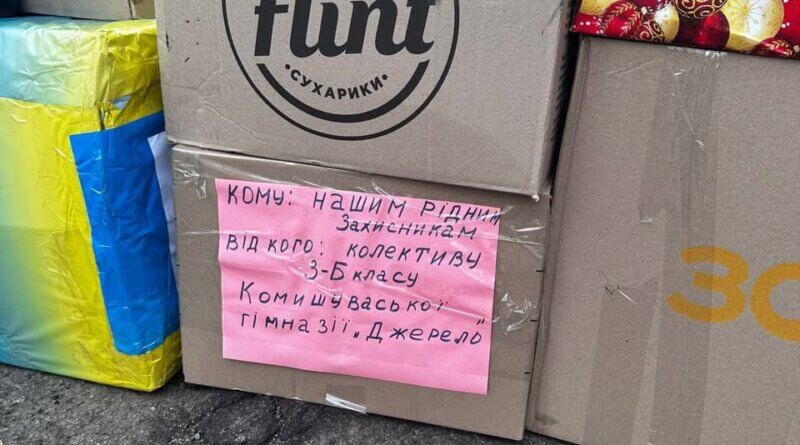 flint
•СУХАРИКИ•
КОМУ: НАШИМ РІДНИМ
Захисникам
ВІД КОГО: КОЛЕКТИВУ
3-Б класу
Комишуваської
гімназії „Джерель"
ЗО